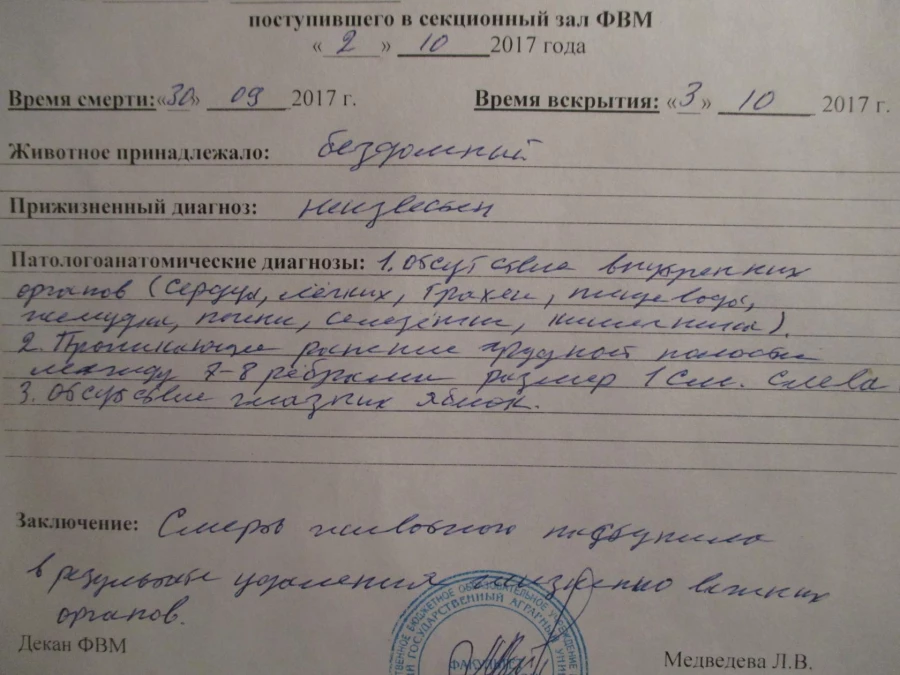 поступившего в секционный зал ФВМ
« 2 » 10 2017 года
Время смерти:«30» 09 2017 г. Время вскрытия: «3» 10 2017 г.
Животное принадлежало: бездомный
Прижизненный диагноз: неизвестен
Патологоанатомические диагнозы: 1. Отсутствие внутренних
органов (сердца, лёгких, трахеи, пищевода,
желудка, почки, селезёнки, кишечника).
2. Проникающее ранение грудной полости
между 7-8 рёбрами размер 1 см. слева
3. Отсутствие глазных яблок.
Заключение: Смерть животного наступила
в результате удаления жизненно важных
органов.
Декан ФВМ
БЮДЖЕТНОЕ ОБРАЗОВАТЕЛЬНОЕ УЧРЕЖДЕНИЕ
ГОСУДАРСТВЕННЫЙ АГРАРНЫЙ
Медведева Л.В.